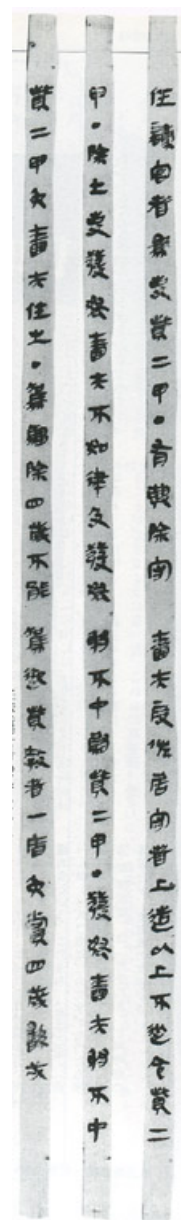 任灋官者為吏貲二甲·有興除守嗇夫叚佐居守者上造以上不從令貲二
甲·除士吏發弩嗇夫不如律及發弩射不中尉貲二甲·發弩嗇夫射不中
貲二甲免嗇夫任之·駕騶除四歲不能駕御貲教者一盾免賞四歲繇戍